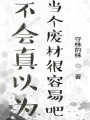 不会真以为
当个废材很容易吧
守株的株
著